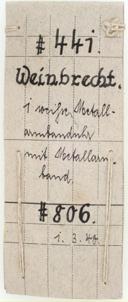 # 441.
Weinbrecht.
1 weiße Metall-
armbanduhr
mit Metallarm-
band.
# 806.
1. 3. 44